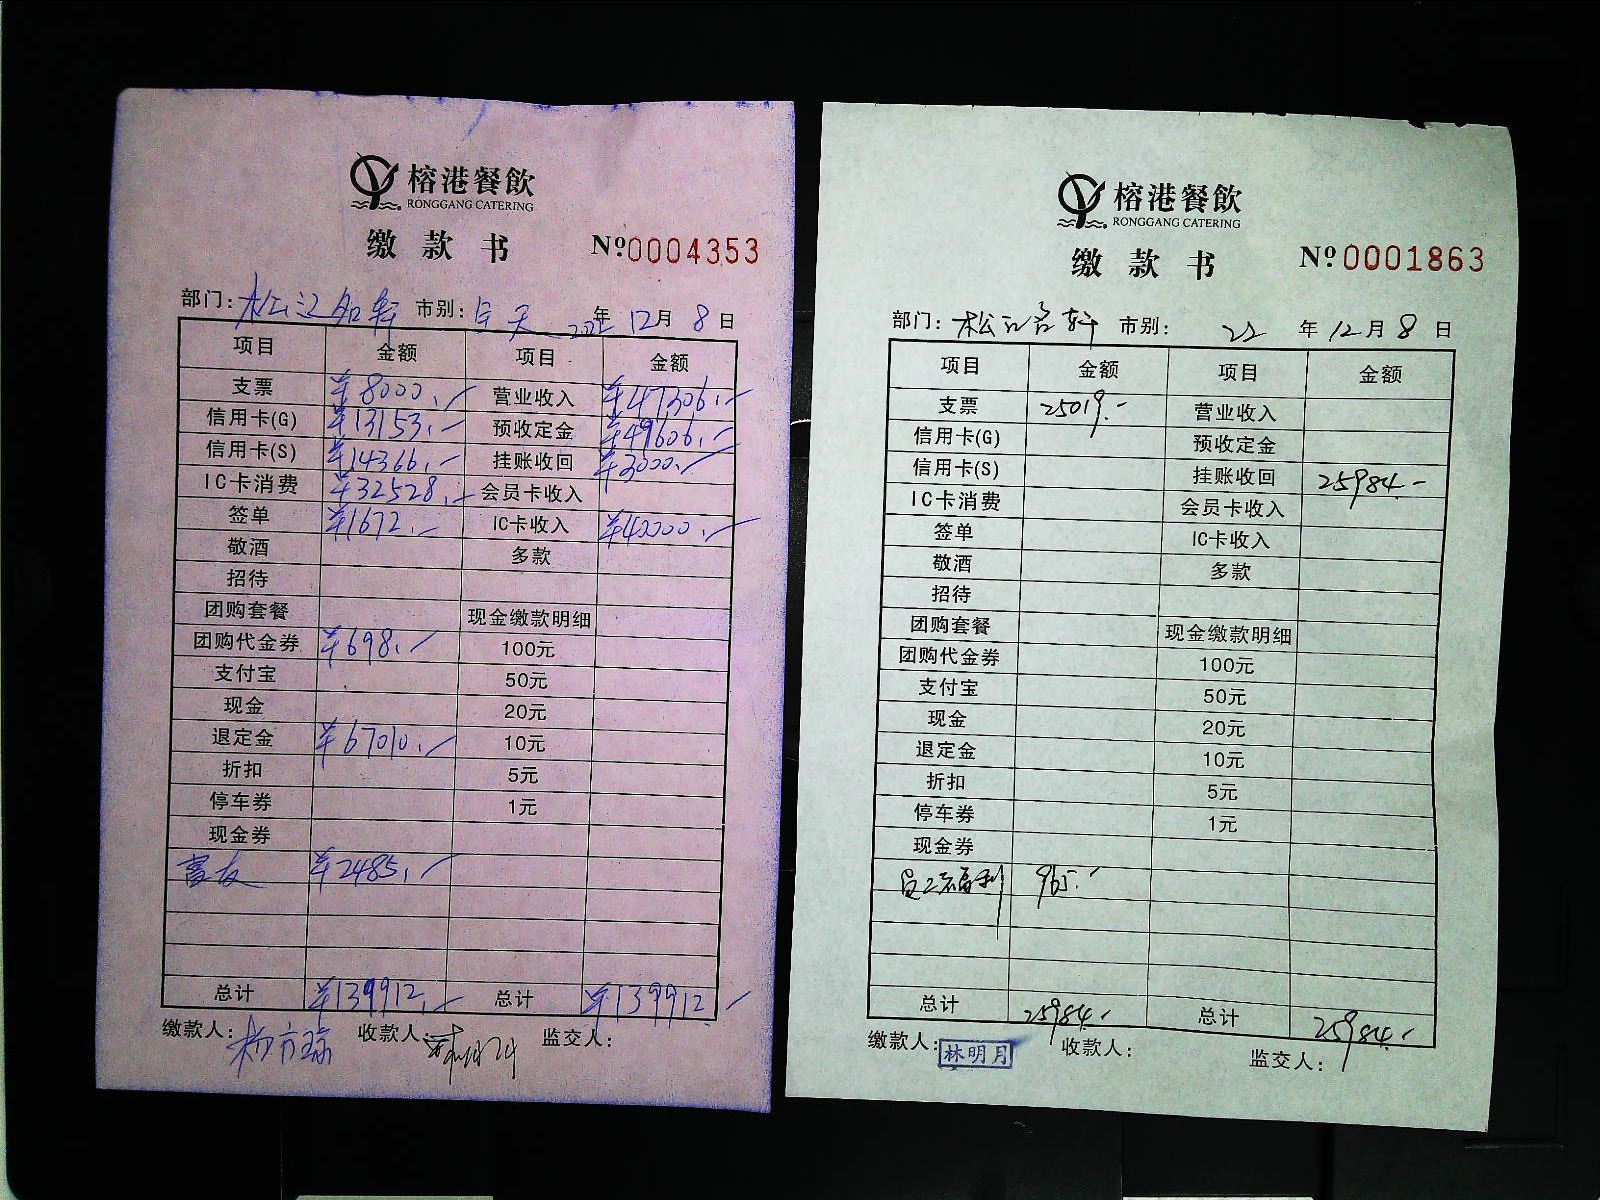 榕港餐飲
RONGGANG CATERING
缴款书 №0004353
部门: 松江名轩 市别: 白天 2022年12月8日
项目 金额 项目 金额
支票 ¥8000.- 营业收入 ¥47306.-
信用卡(G) ¥13153.- 预收定金 ¥49606.-
信用卡(S) ¥14366.- 挂账收回 ¥3000.-
IC卡消费 ¥32528.- 会员卡收入
签单 ¥1672.- IC卡收入 ¥40000.-
敬酒 多款
招待
团购套餐 现金缴款明细
团购代金券 ¥698.- 100元
支付宝 50元
现金 20元
退定金 ¥67010.- 10元
折扣 5元
停车券 1元
现金券
富友 ¥2485.-
总计 ¥139912.- 总计 ¥139912.-
缴款人: 收款人: 监交人:
榕港餐飲
RONGGANG CATERING
缴款书 №0001863
部门: 松江名轩 市别: 22年12月8日
项目 金额 项目 金额
支票 25019.- 营业收入
信用卡(G) 预收定金
信用卡(S) 挂账收回 25984.-
IC卡消费 会员卡收入
签单 IC卡收入
敬酒 多款
招待
团购套餐 现金缴款明细
团购代金券 100元
支付宝 50元
现金 20元
退定金 10元
折扣 5元
停车券 1元
现金券
员工福利 965.-
总计 25984.- 总计 25984.-
缴款人: 林明月 收款人: 监交人: